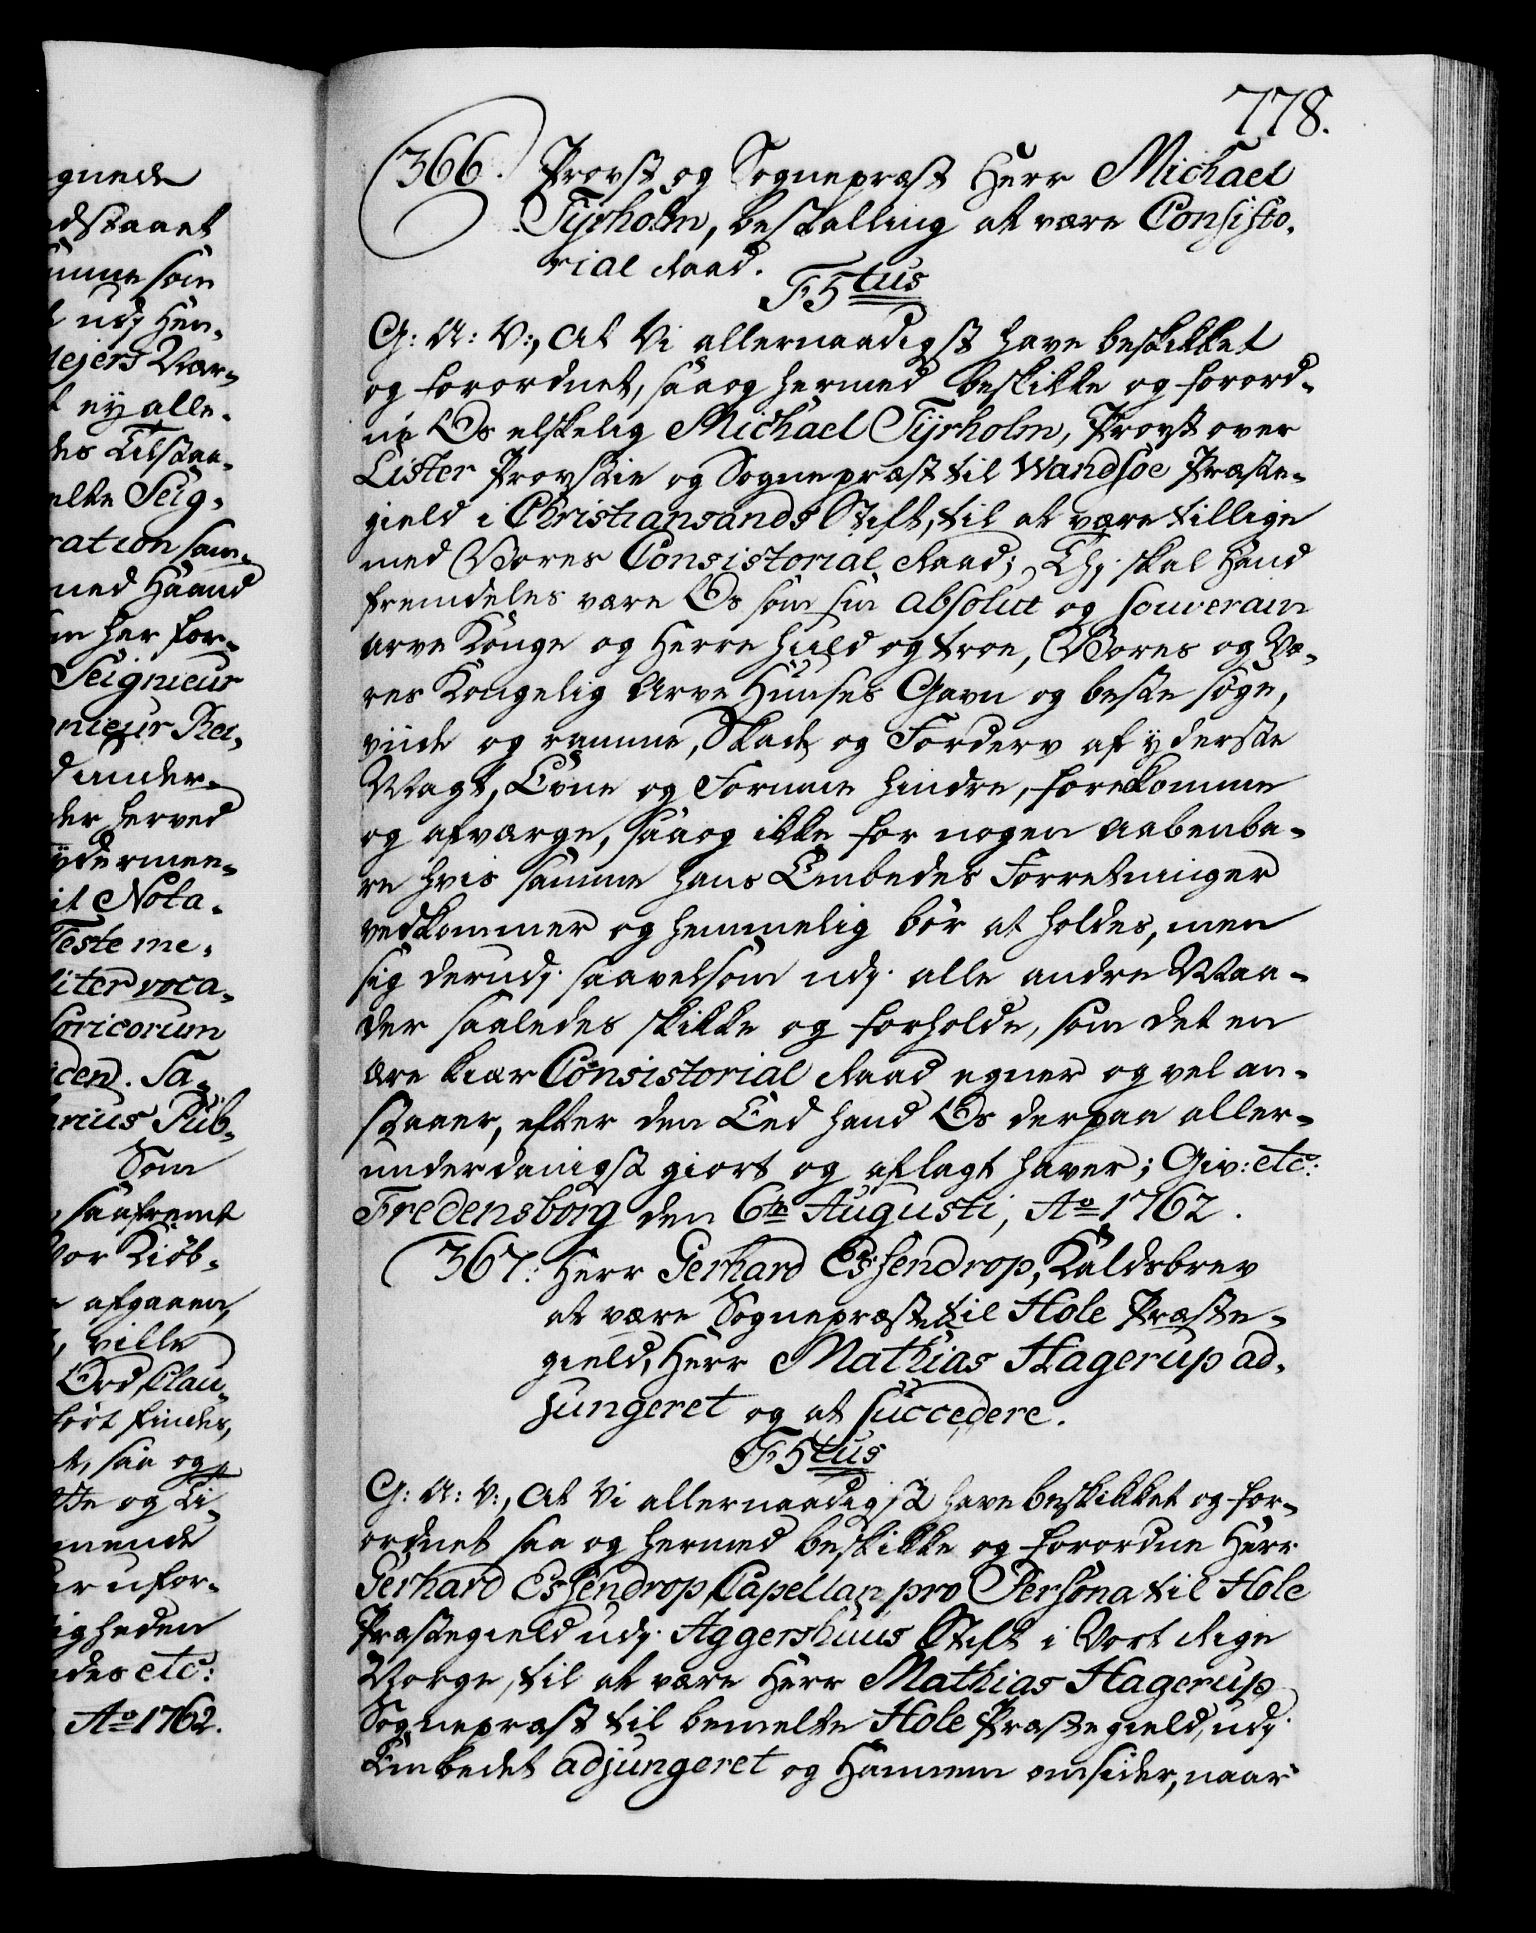 gnede
dstaaet
umme som
udj Hen-
Mejers Vær-
t ey alle-
des Tilstaa-
elte Seig-
ration sam-
med Haand
en her for-
Seignieur
nieur Rei-
d under-
der herved
ydermee-
it Nota-
Teste me-
liter voca-
Loricorum
iden. Sa-
arius Pub-
Som
saafremt
Vor Kiøb-
afgaaen,
ville
Ord Clau-
ført findes,
et, saa og
tte og Li-
mende
ar ufor-
igheden
des etc:
Ao 1762.
778.
366. Provst og Sognepræst Herr Michael
Tyrholm, bestalling at være Consisto-
rial Raad.
F5tus
G: A: V:, At Vi allernaadigst have beskikket
og forordnet, saa og hermed beskikke og forord-
ne Os elskelig Michael Tyrholm, Provst over
Lister Provstie og Sognepræst til Wandsöe Præste-
gield i Christiansands Stift, til at være tillige
med Vores Consistorial Raad; Thj skal Hand
fremdeles være Os som sin absolut og souverain
Arve Konge og Herre huld og troe, Vores og Vo-
res Kongelig Arve Huuses Gavn og beste söge,
viide og ramme, Skade og Forderv af yderste
Magt, Evne og Formue hindre, forekomme
og afværge, saa og ikke for nogen aabenba-
re hvis samme hans Embedes Forretninger
vedkommer og hemmelig bör at holdes, men
sig derudj saavelsom udj alle andre Maa-
der saaledes skikke og forholde, som det en
ære kiær Consistorial Raad egner og vel an-
staaer, efter den Eed hand Os derpaa aller-
underdanigst giort og aflagt haver; Giv: etc:
Fredensborg den 6te Augusti, Ao 1762.
367: Herr Gerhard Essendrop, Kaldsbrev
at være Sognepræst til Hole Præste-
gield, Herr Mathias Hagerup ad-
jungeret og at succedere.
F5tus
G: A: V:, At Vi allernaadigst have beskikket og for-
ordnet saa og hermed beskikke og forordne Herr
Gerhard Essendrop, Capellan pro Persona til Hole
Præstegield udj Aggershuus Stift i Vort Rige
Norge, til at være Herr Mathias Hagerup
Sognepræst til bemelte Hole Præstegield, udj
Embedet adjungeret og Hannem omsider, naar